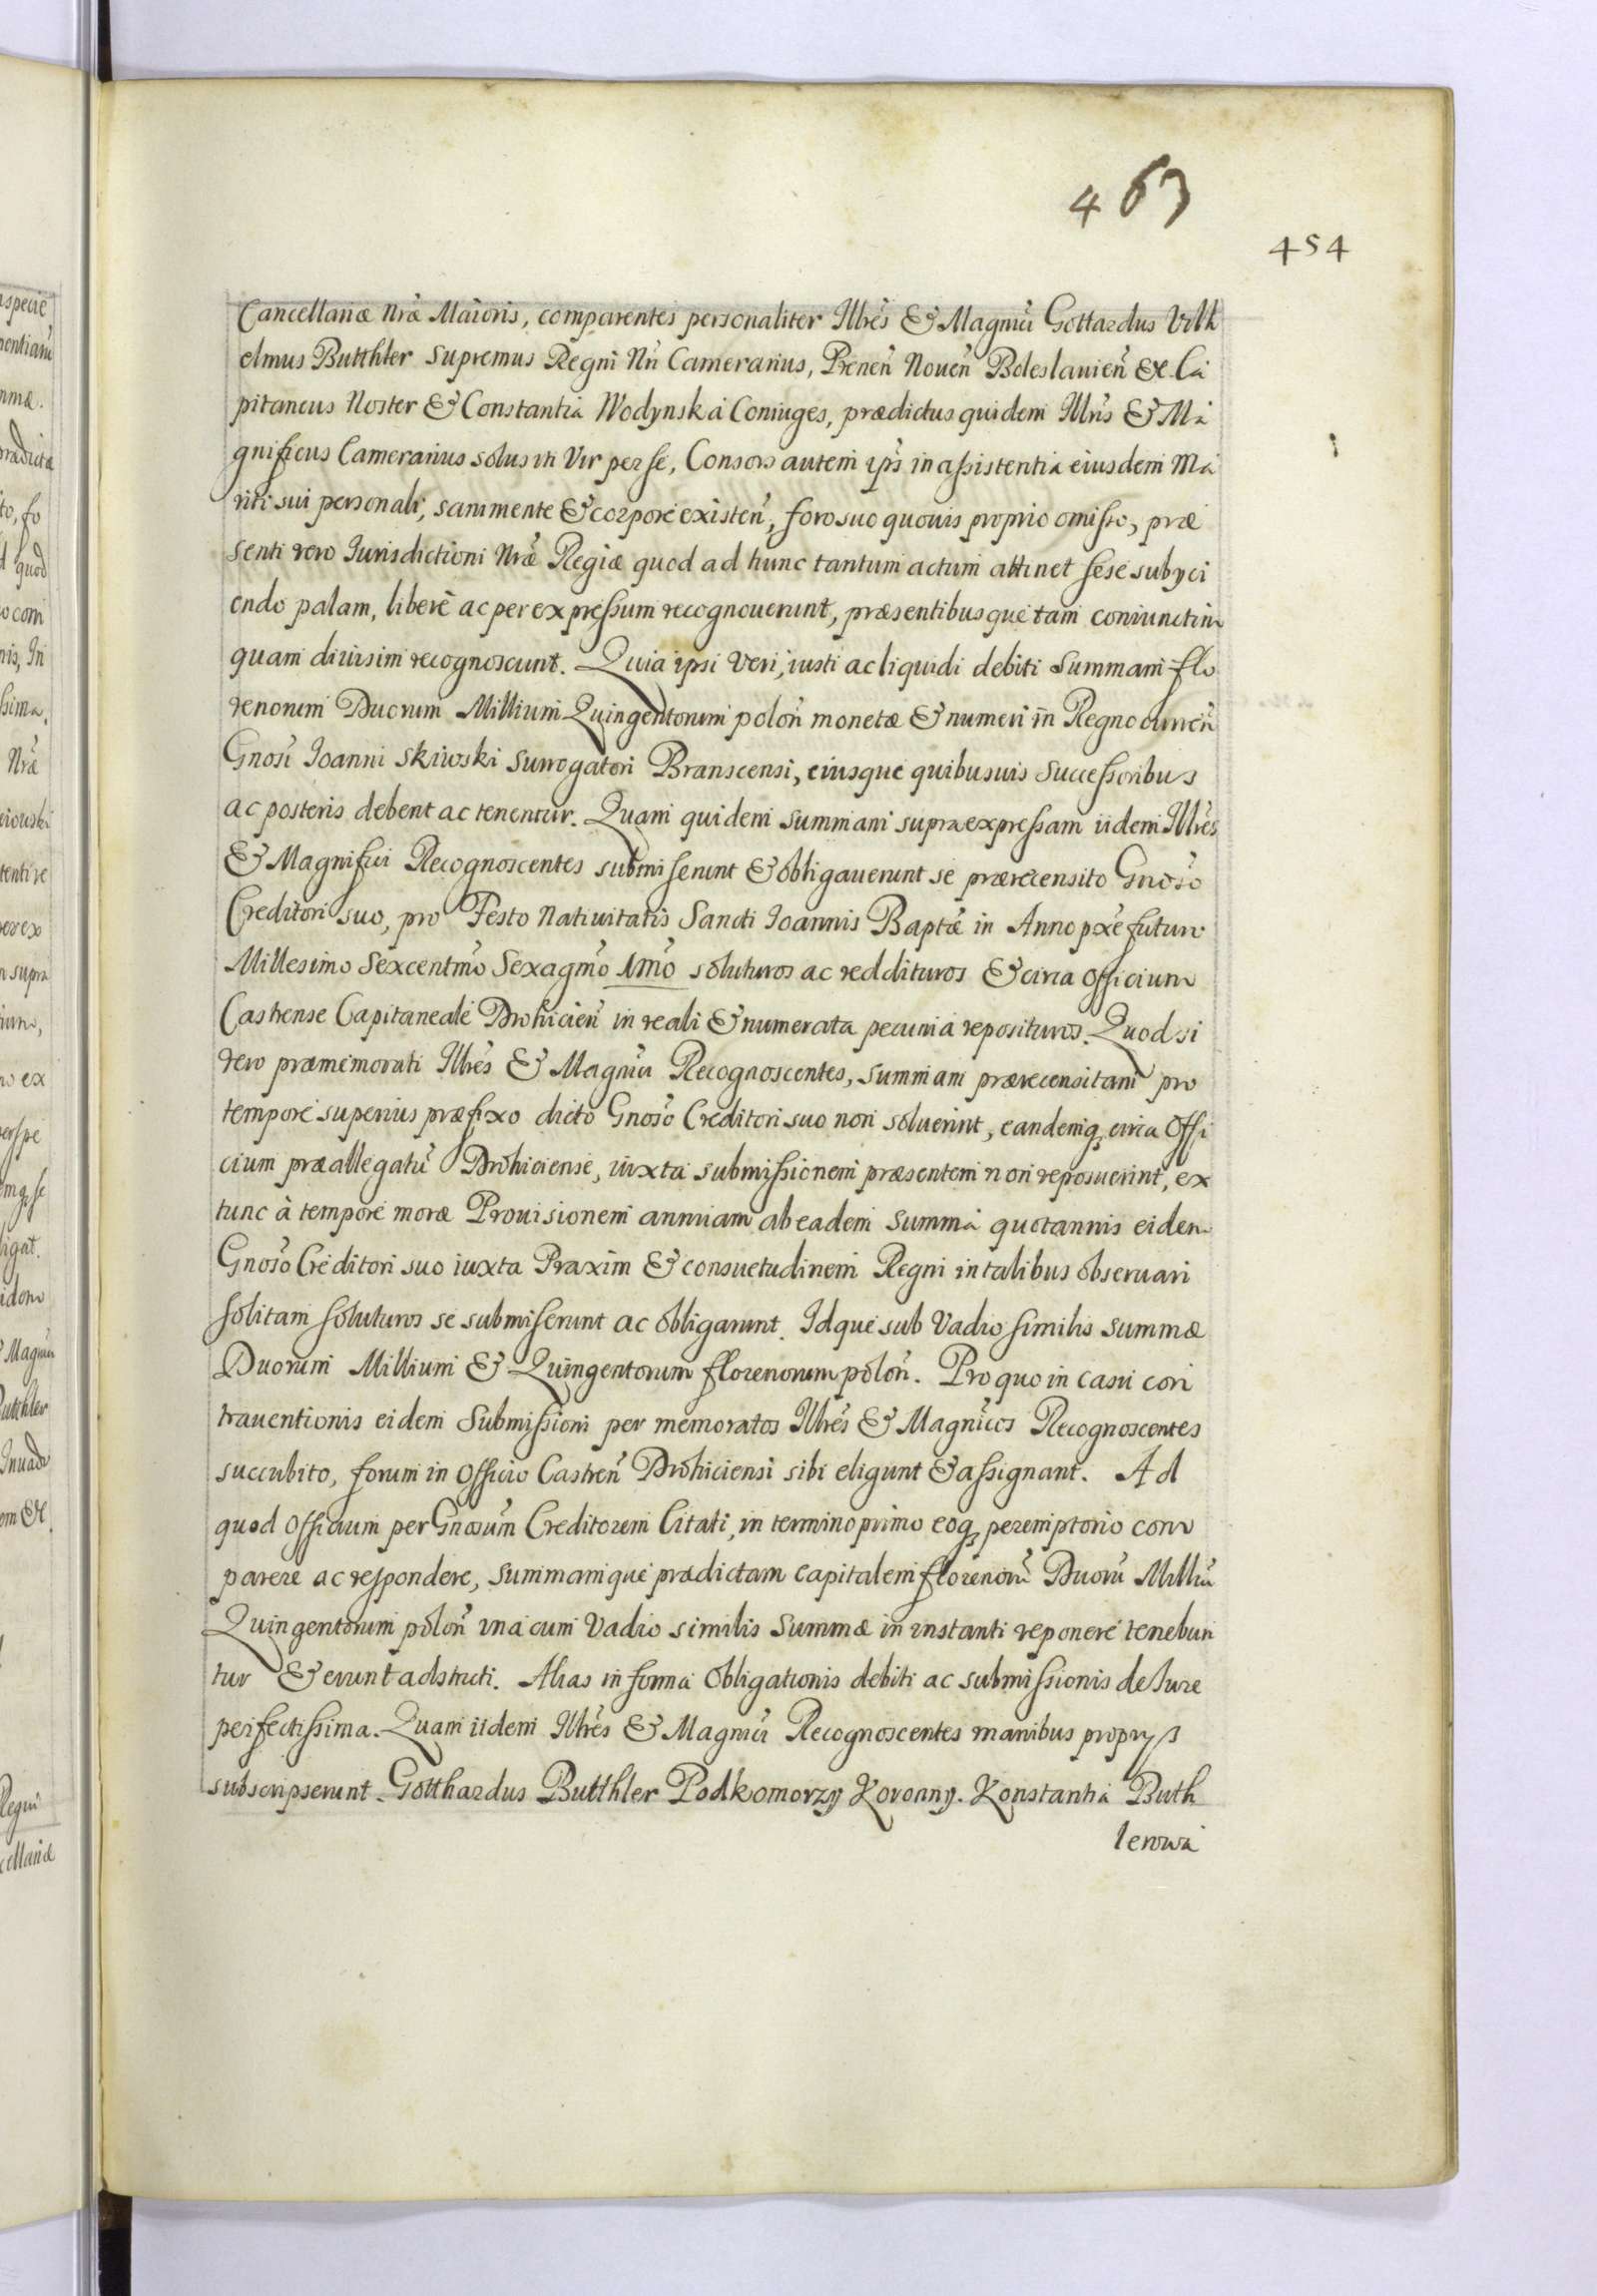 463
454
Cancellariæ Nræ Maioris, comparentes personaliter Illres & Magnici Gottardus Vilh
elmus Butthler Supremus Regni Nri Camerarius, Prenen Nouen Boleslauien &c. Ca
pitaneus Noster & Constantia Wodynska Coniuges, prædictus quidem Illris & Ma
gnificus Camerarius solus uti Vir per se, Consors autem ipsis in assistentia eiusdem Ma
riti sui personali, sani mente & corpore existen, foro suo quouis proprio omisso, præ
senti vero Iurisdictioni Nræ Regiæ quod ad hunc tantum actum attinet sese subyci
endo palam, liberè ac per expressum recognouerunt, præsentibusque tam coniunctim
quam diuisim recognoscunt. Quia ipsi veri, iusti ac liquidi debiti Summam flo
renorum Duorum Millium Quingentorum polon monetæ & numeri in Regno curren
Gnoso Ioanni Skiwski Surrogatori Branscensi, eiusque quibusuis Successoribus
ac posteris debent ac tenentur. Quam quidem summam supra expressam iidem Illres
& Magnifici Recognoscentes submiserunt & obligauerunt se prærecensito Gnoso
Creditori suo, pro Festo Natiuitatis Sancti Ioannis Baptæ in Anno pxe futuro
Millesimo Sexcentmo Sexagmo 1mo soluturos ac reddituros & circa officium
Castrense Capitaneale Drohicien in reali & numerata pecunia reposituros. Quod si
vero præmemorati Illres & Magnici Recognoscentes, summam prærecensitam pro
tempore superius præfixo dicto Gnoso Creditori suo non soluerint, eandemq circa Offi
cium præallegatu Drohiciense, iuxta submissionem præsentem non reposuerint, ex
tunc à tempore moræ Prouisionem annuam ab eadem summa quotannis eidem
Gnoso Creditori suo iuxta Praxim & consuetudinem Regni in talibus obseruari
solitam soluturos se submiserunt ac obligarunt. Idque sub Vadio similis summæ
Duorum Millium & Quingentorum florenorum polon. Pro quo in casu con
trauentionis eidem Submissioni per memoratos Illres & Magnicos Recognoscentes
succubito, forum in Officio Castren Drohiciensi sibi eligunt & assignant. Ad
quod Officium per Gnosum Creditorem Citati, in termino primo eoq peremptorio com
parere ac respondere, summamque prædictam capitalem florenoru Duoru Milliu
Quingentorum polon vna cum Vadio similis summæ in instanti reponere tenebun
tur & erunt adstricti. Alias in forma Obligationis debiti ac submissionis de Iure
perfectissima. Quam iidem Illres & Magnici Recognoscentes manibus proprys
subscripserunt. Gotthardus Butthler Podkomorzy Koronny. Konstantia Buth
lerowa